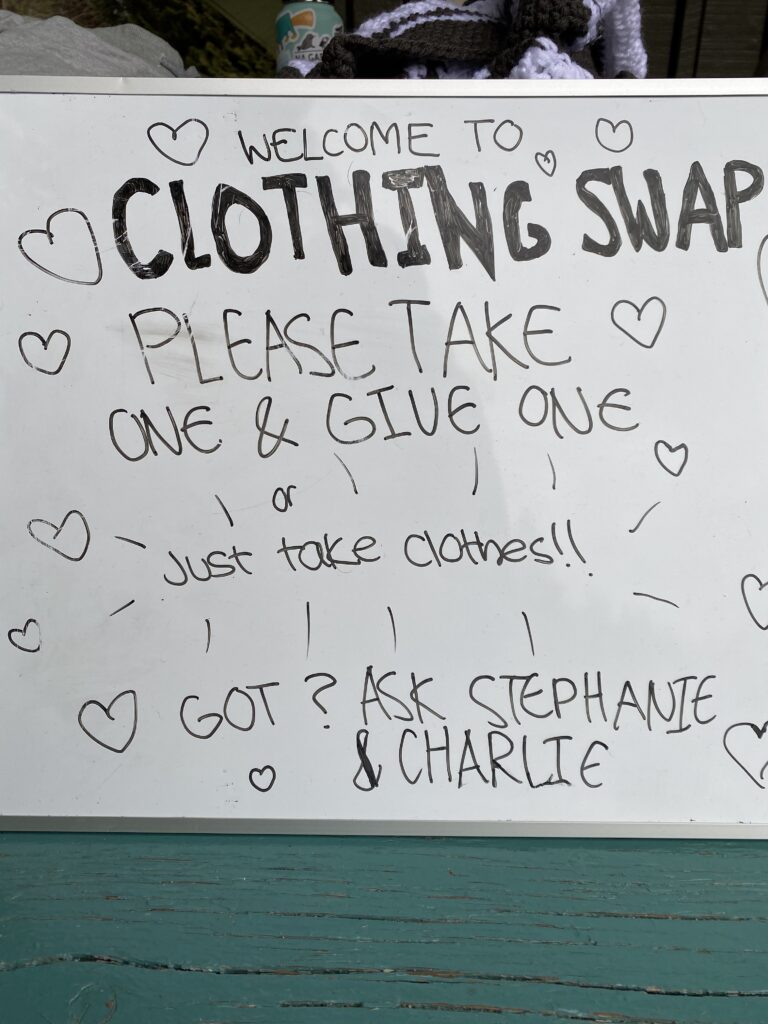 WELCOME TO
CLOTHING SWAP
PLEASE TAKE
ONE & GIVE ONE
or
Just take clothes!!
GOT ? ASK STEPHANIE
& CHARLIE